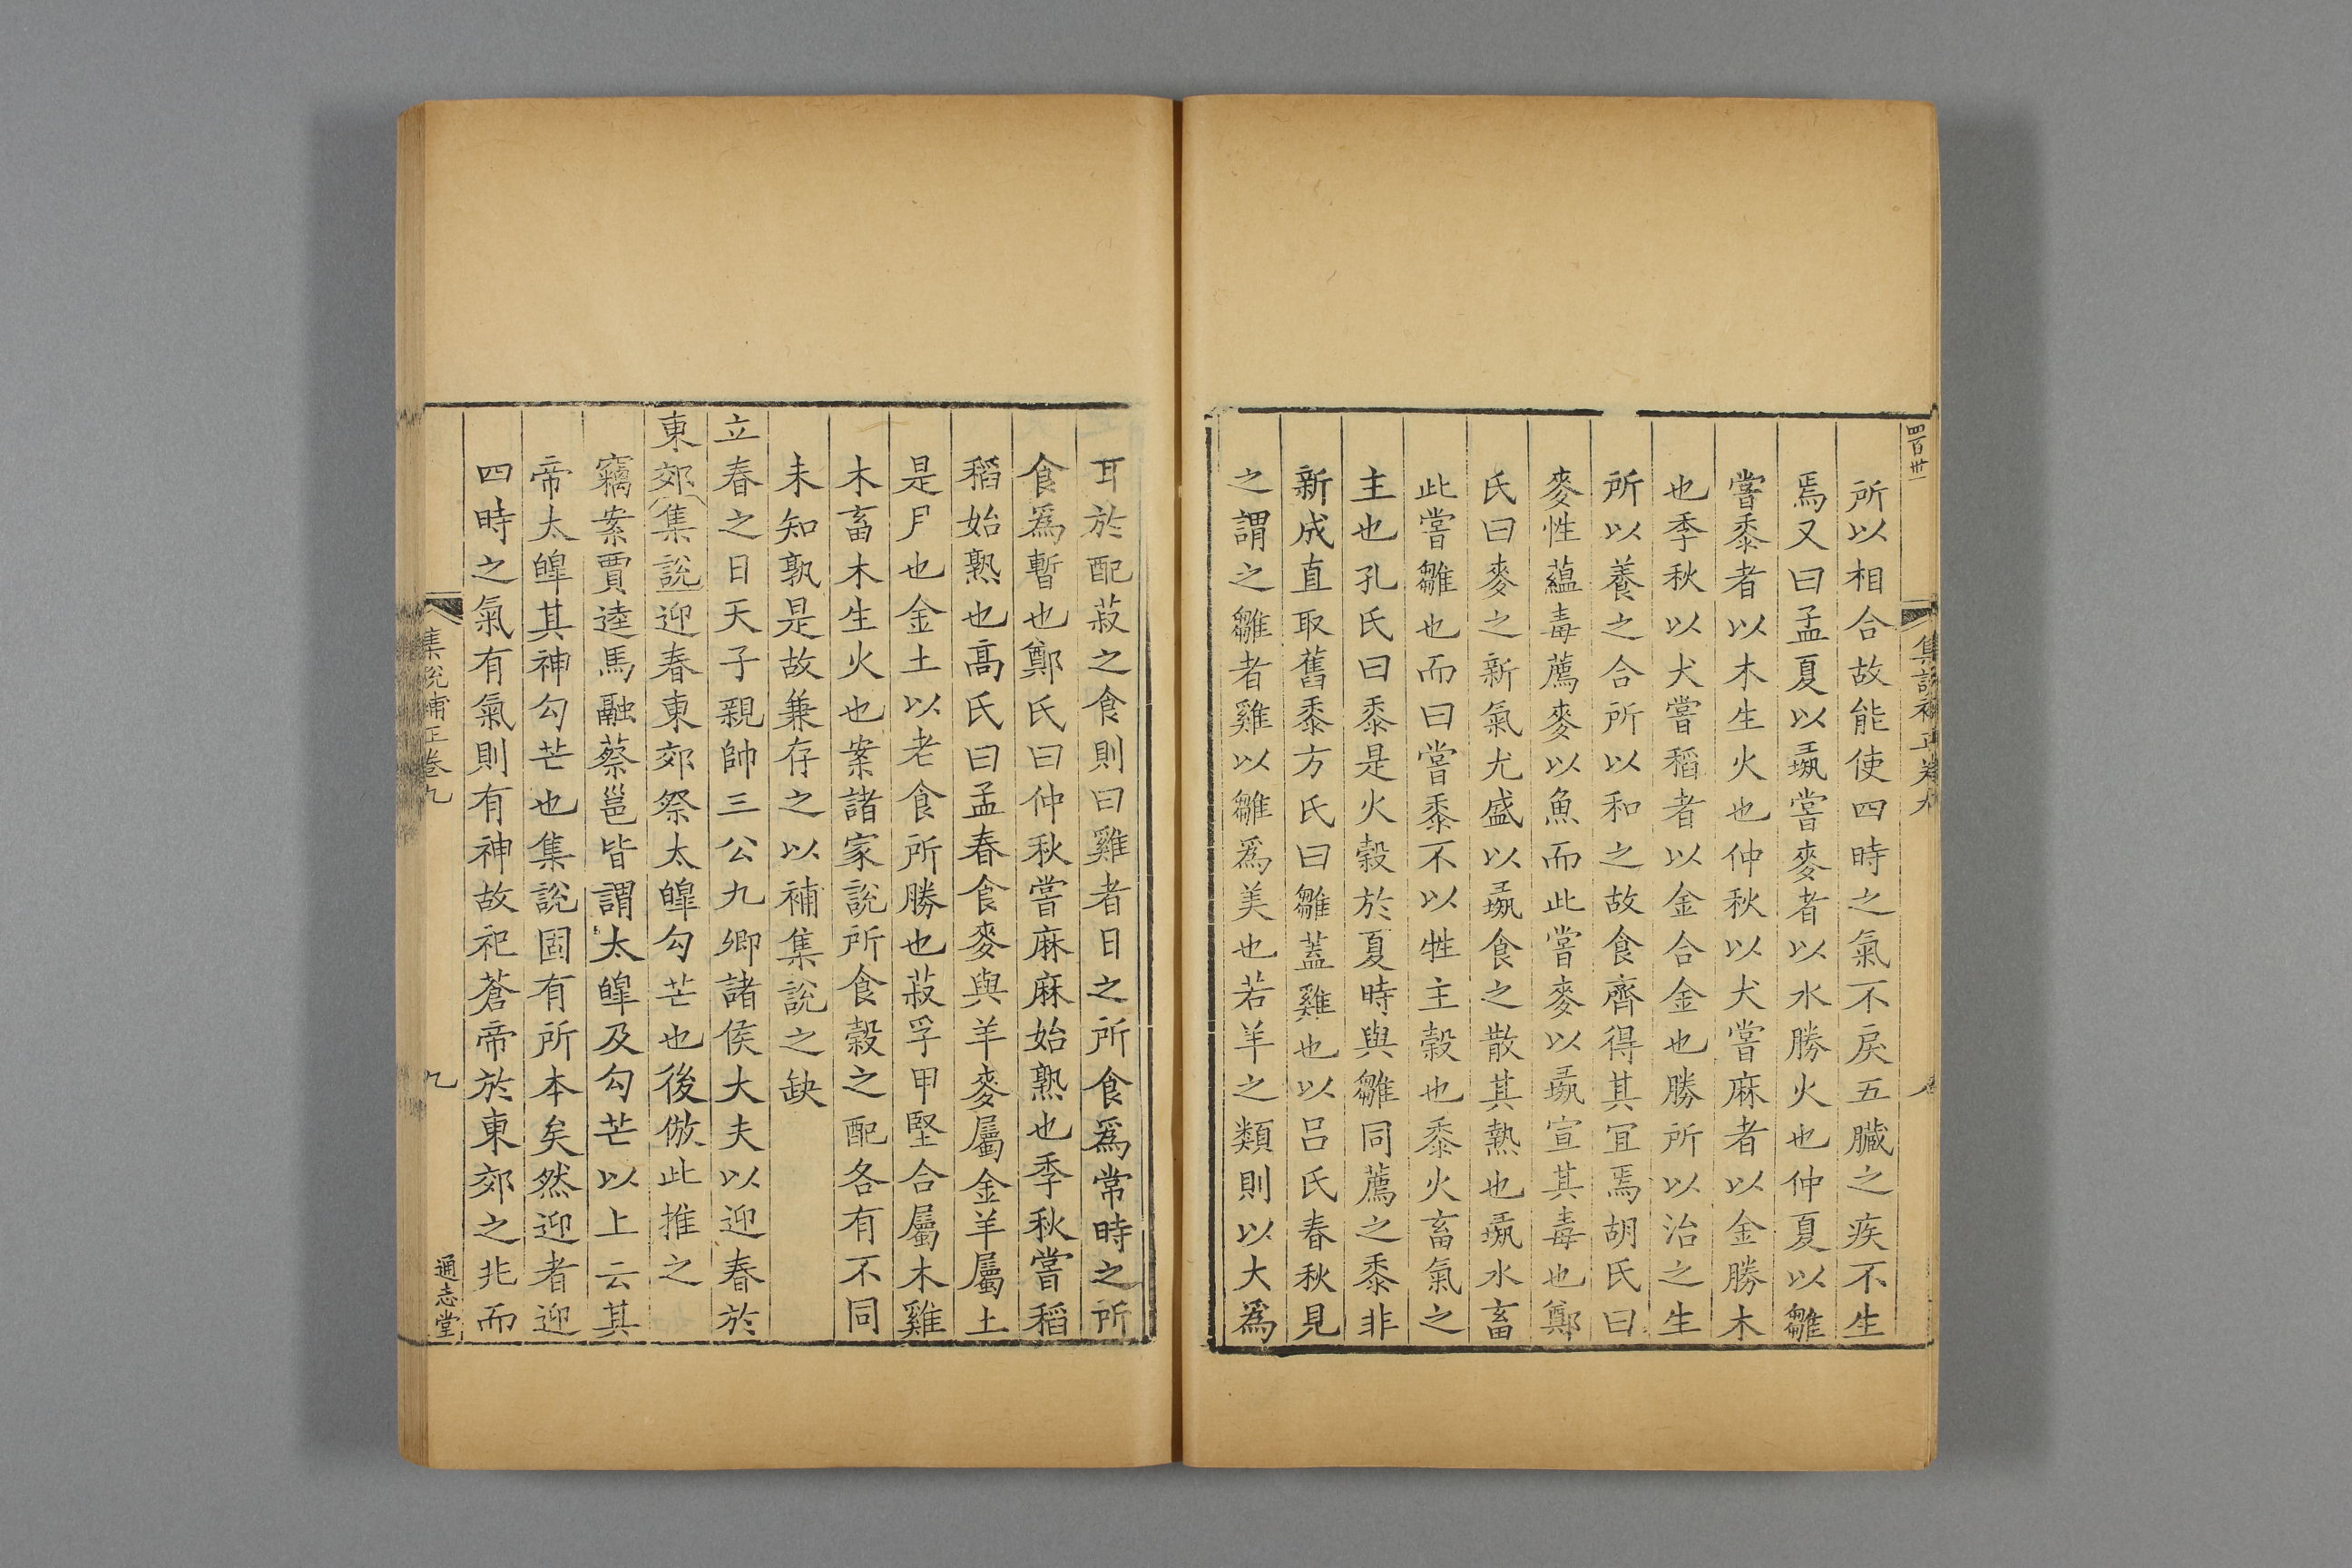 四百卅一
集説補正卷九
所以相合故能使四時之氣不戾五臟之疾不生
焉又曰孟夏以彘嘗麥者以水勝火也仲夏以雛
嘗黍者以木生火也仲秋以犬嘗麻者以金勝木
也季秋以犬嘗稻者以金合金也勝所以治之生
所以養之合所以和之故食齊得其宜焉胡氏曰
麥性蘊毒薦麥以魚而此嘗麥以彘宣其毒也鄭
氏曰麥之新氣尤盛以彘食之散其熱也彘水畜
此嘗雛也而曰嘗黍不以牲主穀也黍火畜氣之
主也孔氏曰黍是火穀於夏時與雛同薦之黍非
新成直取舊黍方氏曰雛蓋雞也以呂氏春秋見
之謂之雛者雞以雛爲美也若羊之類則以大爲
耳於配菽之食則曰雞者日之所食爲常時之所
食爲暫也鄭氏曰仲秋嘗麻麻始熟也季秋嘗稻
稻始熟也高氏曰孟春食麥與羊麥屬金羊屬土
是月也金土以老食所勝也菽孚甲堅合屬木雞
木畜木生火也案諸家說所食穀之配各有不同
未知孰是故兼存之以補集說之缺
立春之日天子親帥三公九卿諸侯大夫以迎春於
東郊集說迎春東郊祭太皥勾芒也後倣此推之
竊案賈逵馬融蔡邕皆謂太皥及勾芒以上云其
帝太皥其神勾芒也集說固有所本矣然迎者迎
四時之氣有氣則有神故祀蒼帝於東郊之兆而
集說補正卷九
九
通志堂